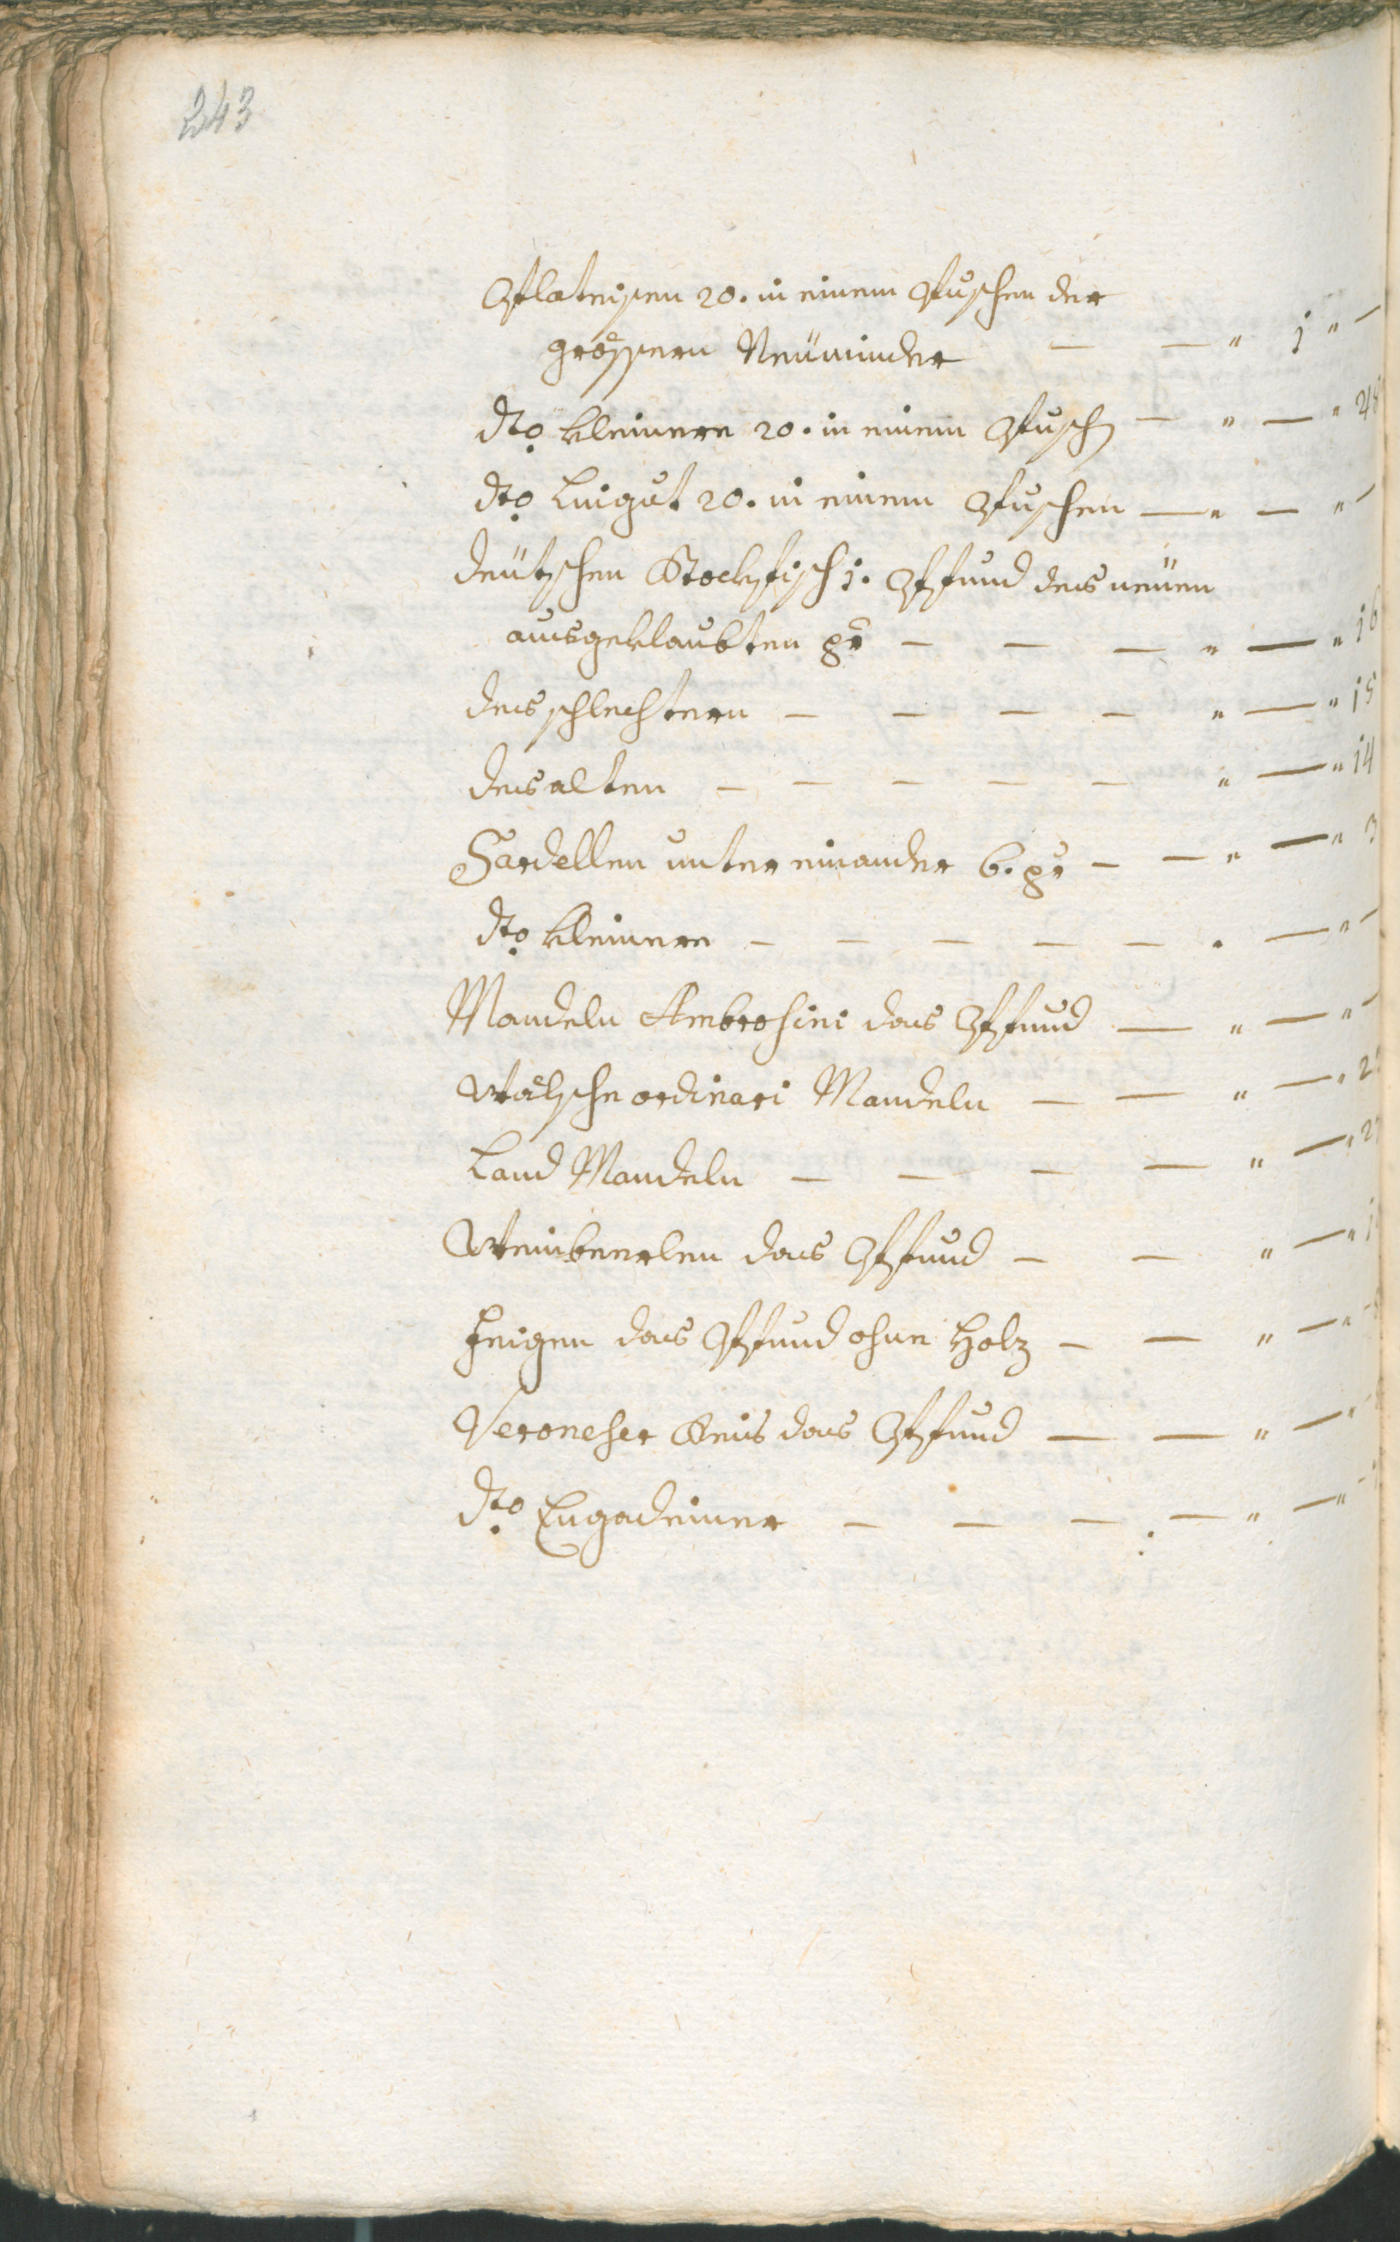 243
Plateisen 20. in einem Puschen der
grössern Neüminder — — „ 1 „ —
dto kleinere 20. in einem Pusch — „ — „ 48
dto Luigut 20. in einem Puschen — „ — „ —
deütschen Stockfisch 1. Pfund des neüen
ausgeklaubten pr — — — „ — „ 16
des schlechtern — — — — „ — „ 15
des alten — — — — — „ — „ 14
Sardellen unter einander 6. pr — — „ — „ 3
dto kleinere — — — — — „ — „ —
Mandeln Ambrosini das Pfund — „ — „ —
Wälsche ordinari Mandeln — — „ — „ 2
Land Mandeln — — — — „ — „ 2
Weinbeerlen das Pfund — — „ — „ 1
Feigen das Pfund ohne Holz — — „ — „
Veroneser Reis das Pfund — — „ — „
dto Engadeiner — — — : — „ — „